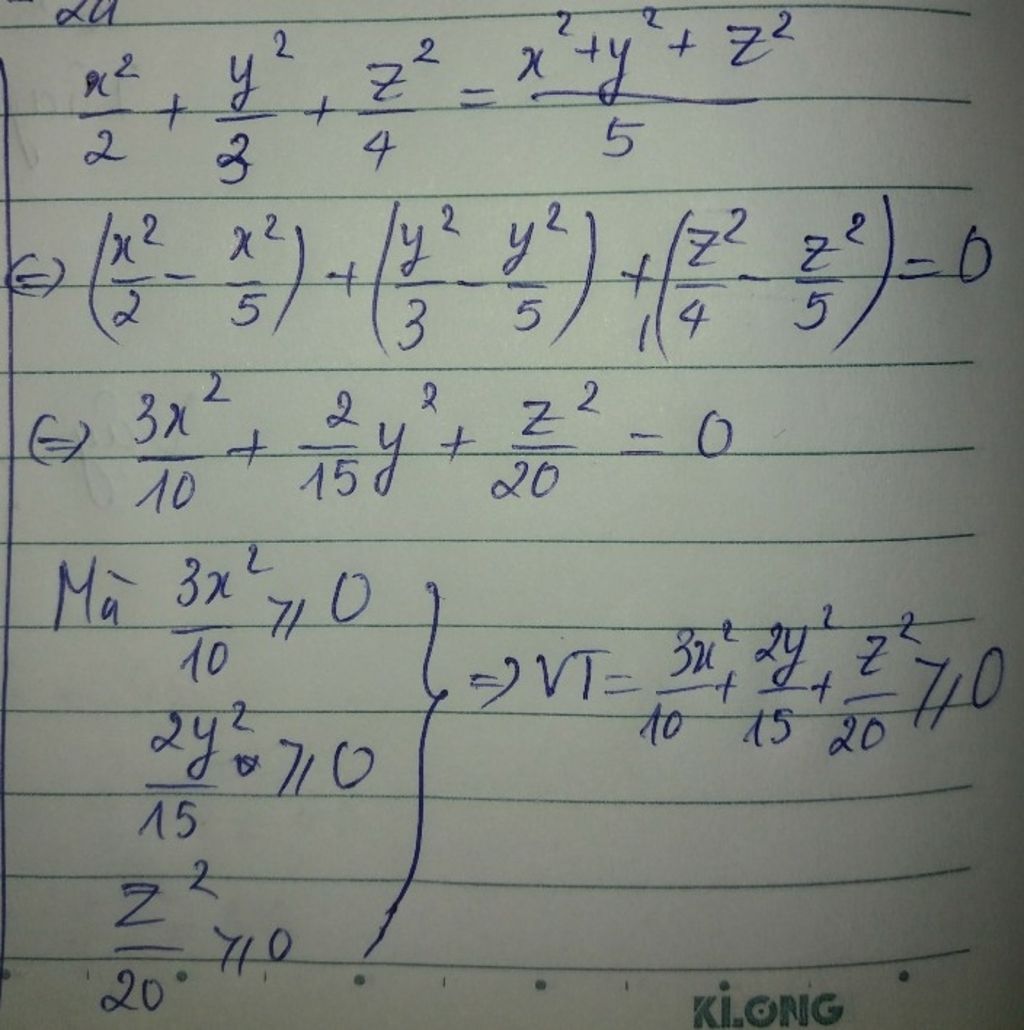 x²/2 + y²/3 + z²/4 = (x²+y²+z²)/5
⇔ (x²/2 - x²/5) + (y²/3 - y²/5) + (z²/4 - z²/5) = 0
⇔ 3x²/10 + 2/15 y² + z²/20 = 0
Mà 3x²/10 ⩾ 0
2y²/15 ⩾ 0
z²/20 ⩾ 0
⇒ VT = 3x²/10 + 2y²/15 + z²/20 ⩾ 0
KLONG